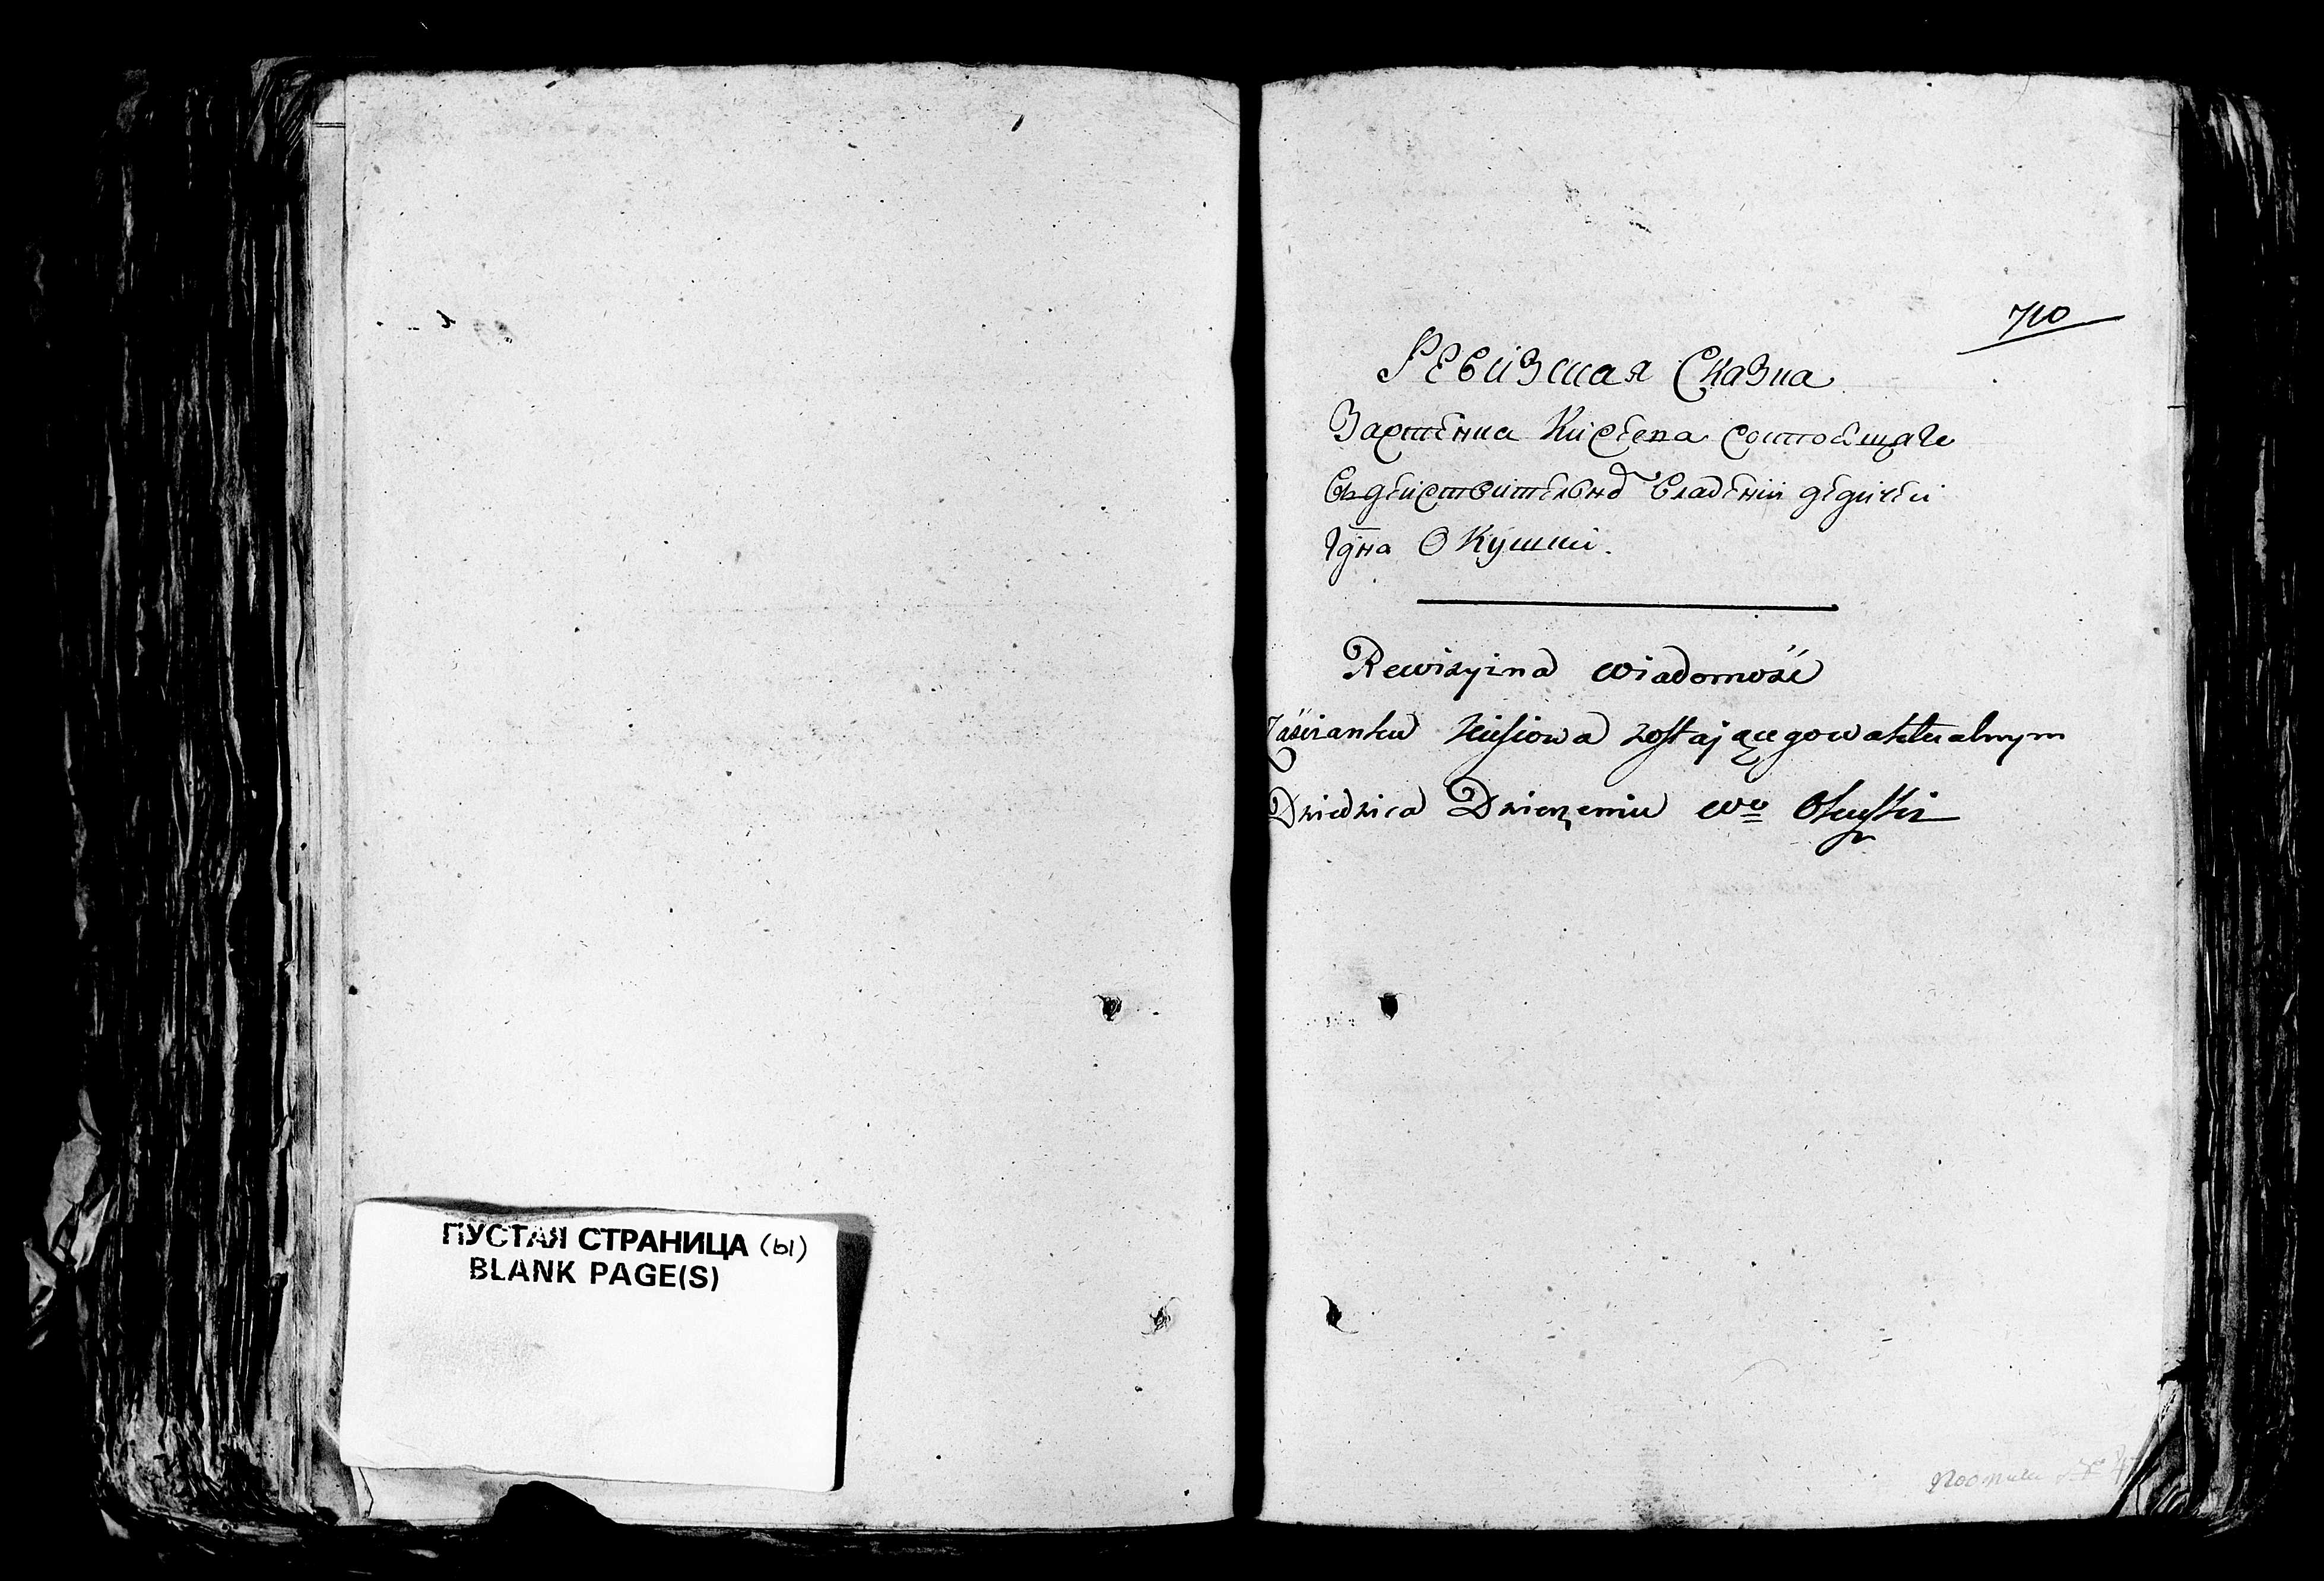 ПУСТАЯ СТРАНИЦА (Ы)
BLANK PAGE(S)
710
Ревизкая Сказка
Застенка Кисева состоящаго
Въ действительно владении дедичей
Гдна Окушки.
Rewizyina wiadomość
Zaścianku Kisiowa zostającego w aktualnym
Dziedzica Dzierzeniu Wo Okuszki